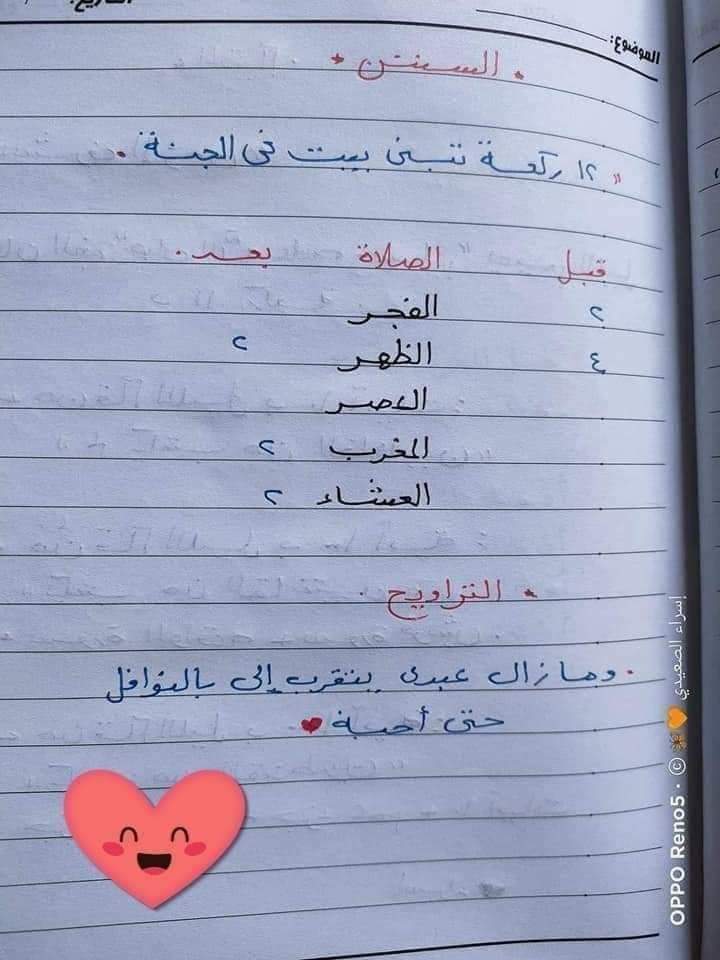 التاريخ:
الموضوع:
* السنن *
" ١٢ ركعة تبنى بيت في الجنة .
قبل الصلاة بعد .
٢ الفجر
٤ الظهر ٢
العصر
المغرب ٢
العشاء ٢
* التراويح .
. وما زال عبدى يتقرب إلى بالنوافل
حتى أحبة ♥
إسراء الصعيدي
OPPO Reno5 · ©